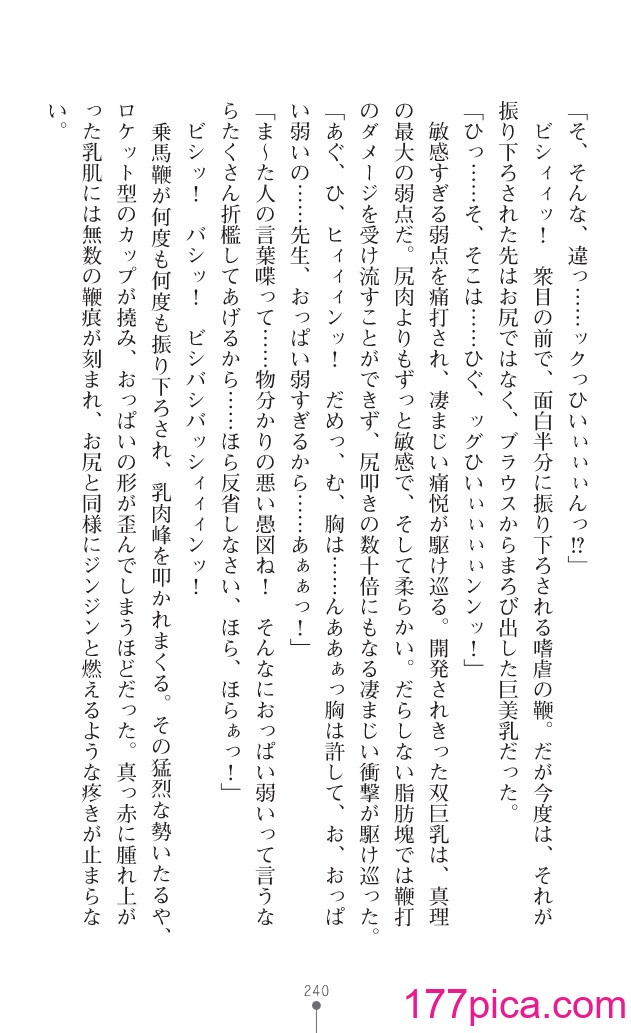 「そ、そんな、違っ……ックっひいぃぃぃんっ!?」
　ビシィィッ！　衆目の前で、面白半分に振り下ろされる嗜虐の鞭。だが今度は、それが
振り下ろされた先はお尻ではなく、ブラウスからまろび出した巨美乳だった。
「ひっ……そ、そこは……ひぐ、ッグひいぃぃぃぃンンッ！」
　敏感すぎる弱点を痛打され、凄まじい痛悦が駆け巡る。開発されきった双巨乳は、真理
の最大の弱点だ。尻肉よりもずっと敏感で、そして柔らかい。だらしない脂肪塊では鞭打
のダメージを受け流すことができず、尻叩きの数十倍にもなる凄まじい衝撃が駆け巡った。
「あぐ、ひ、ヒィィィンッ！　だめっ、む、胸は……んああぁっ胸は許して、お、おっぱ
い弱いの……先生、おっぱい弱すぎるから……あぁぁっ！」
「ま～た人の言葉喋って……物分かりの悪い愚図ね！　そんなにおっぱい弱いって言うな
らたくさん折檻してあげるから……ほら反省しなさい、ほら、ほらぁっ！」
　ビシッ！　バシッ！　ビシバシバッシィィィンッ！
　乗馬鞭が何度も何度も振り下ろされ、乳肉峰を叩かれまくる。その猛烈な勢いたるや、
ロケット型のカップが撓み、おっぱいの形が歪んでしまうほどだった。真っ赤に腫れ上が
った乳肌には無数の鞭痕が刻まれ、お尻と同様にジンジンと燃えるような疼きが止まらな
い。
240
177pica.com